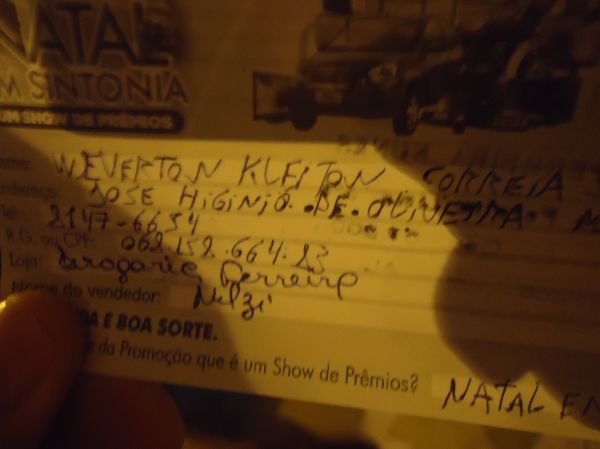 NATAL
M SINTONIA
UM SHOW DE PRÊMIOS
ome: WEVERTON KLEITON CORREIA S
ndereço: JOSE HIGINIO DE OLIVEIRA
Tel.: 2147-6654
R.G. ou CPF: 062.152.664.23
Loja: Drogaria Ferreira
Nome do vendedor: Nilzi
DA E BOA SORTE.
e da Promoção que é um Show de Prêmios?
NATAL EM